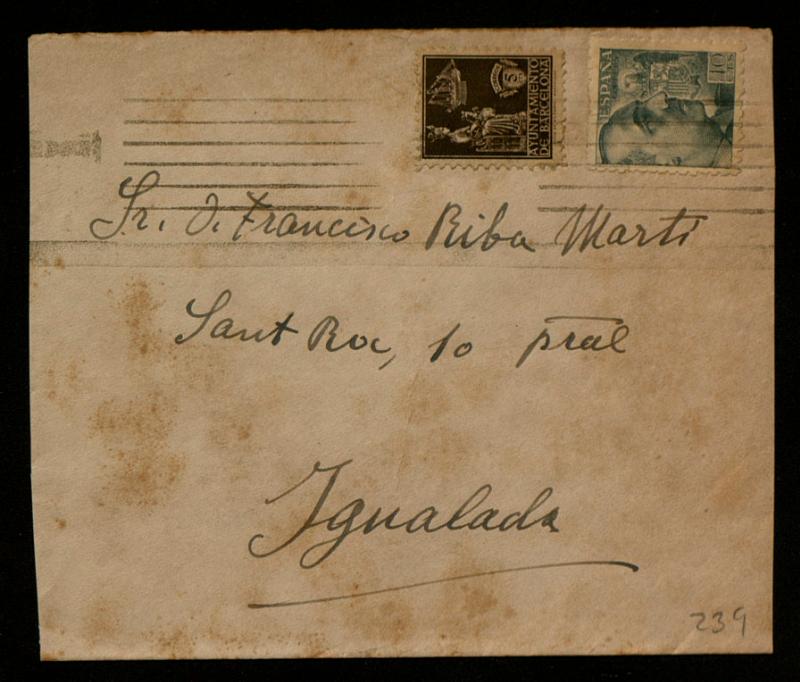 5
AYUNTAMIENTO
DE BARCELONA
ESPAÑA
40
CTS
Sr. D. Francisco Riba Marti
Sant Roc, 10 pral
Igualada
239